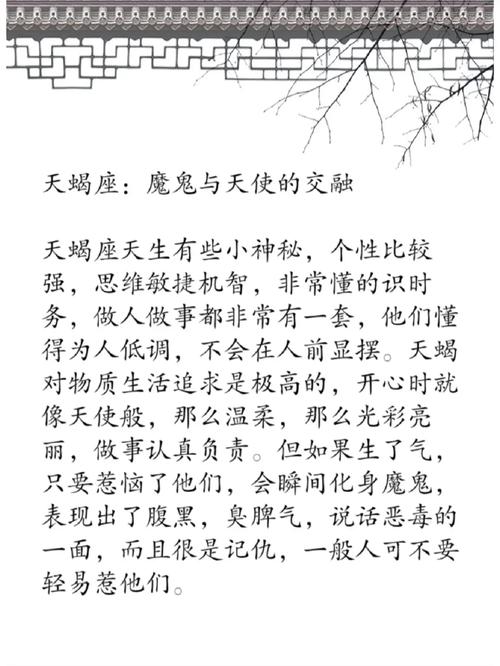 天蝎座：魔鬼与天使的交融
天蝎座天生有些小神秘，个性比较
强，思维敏捷机智，非常懂的识时
务，做人做事都非常有一套，他们懂
得为人低调，不会在人前显摆。天蝎
对物质生活追求是极高的，开心时就
像天使般，那么温柔，那么光彩亮
丽，做事认真负责。但如果生了气，
只要惹恼了他们，会瞬间化身魔鬼，
表现出了腹黑，臭脾气，说话恶毒的
一面，而且很是记仇，一般人可不要
轻易惹他们。